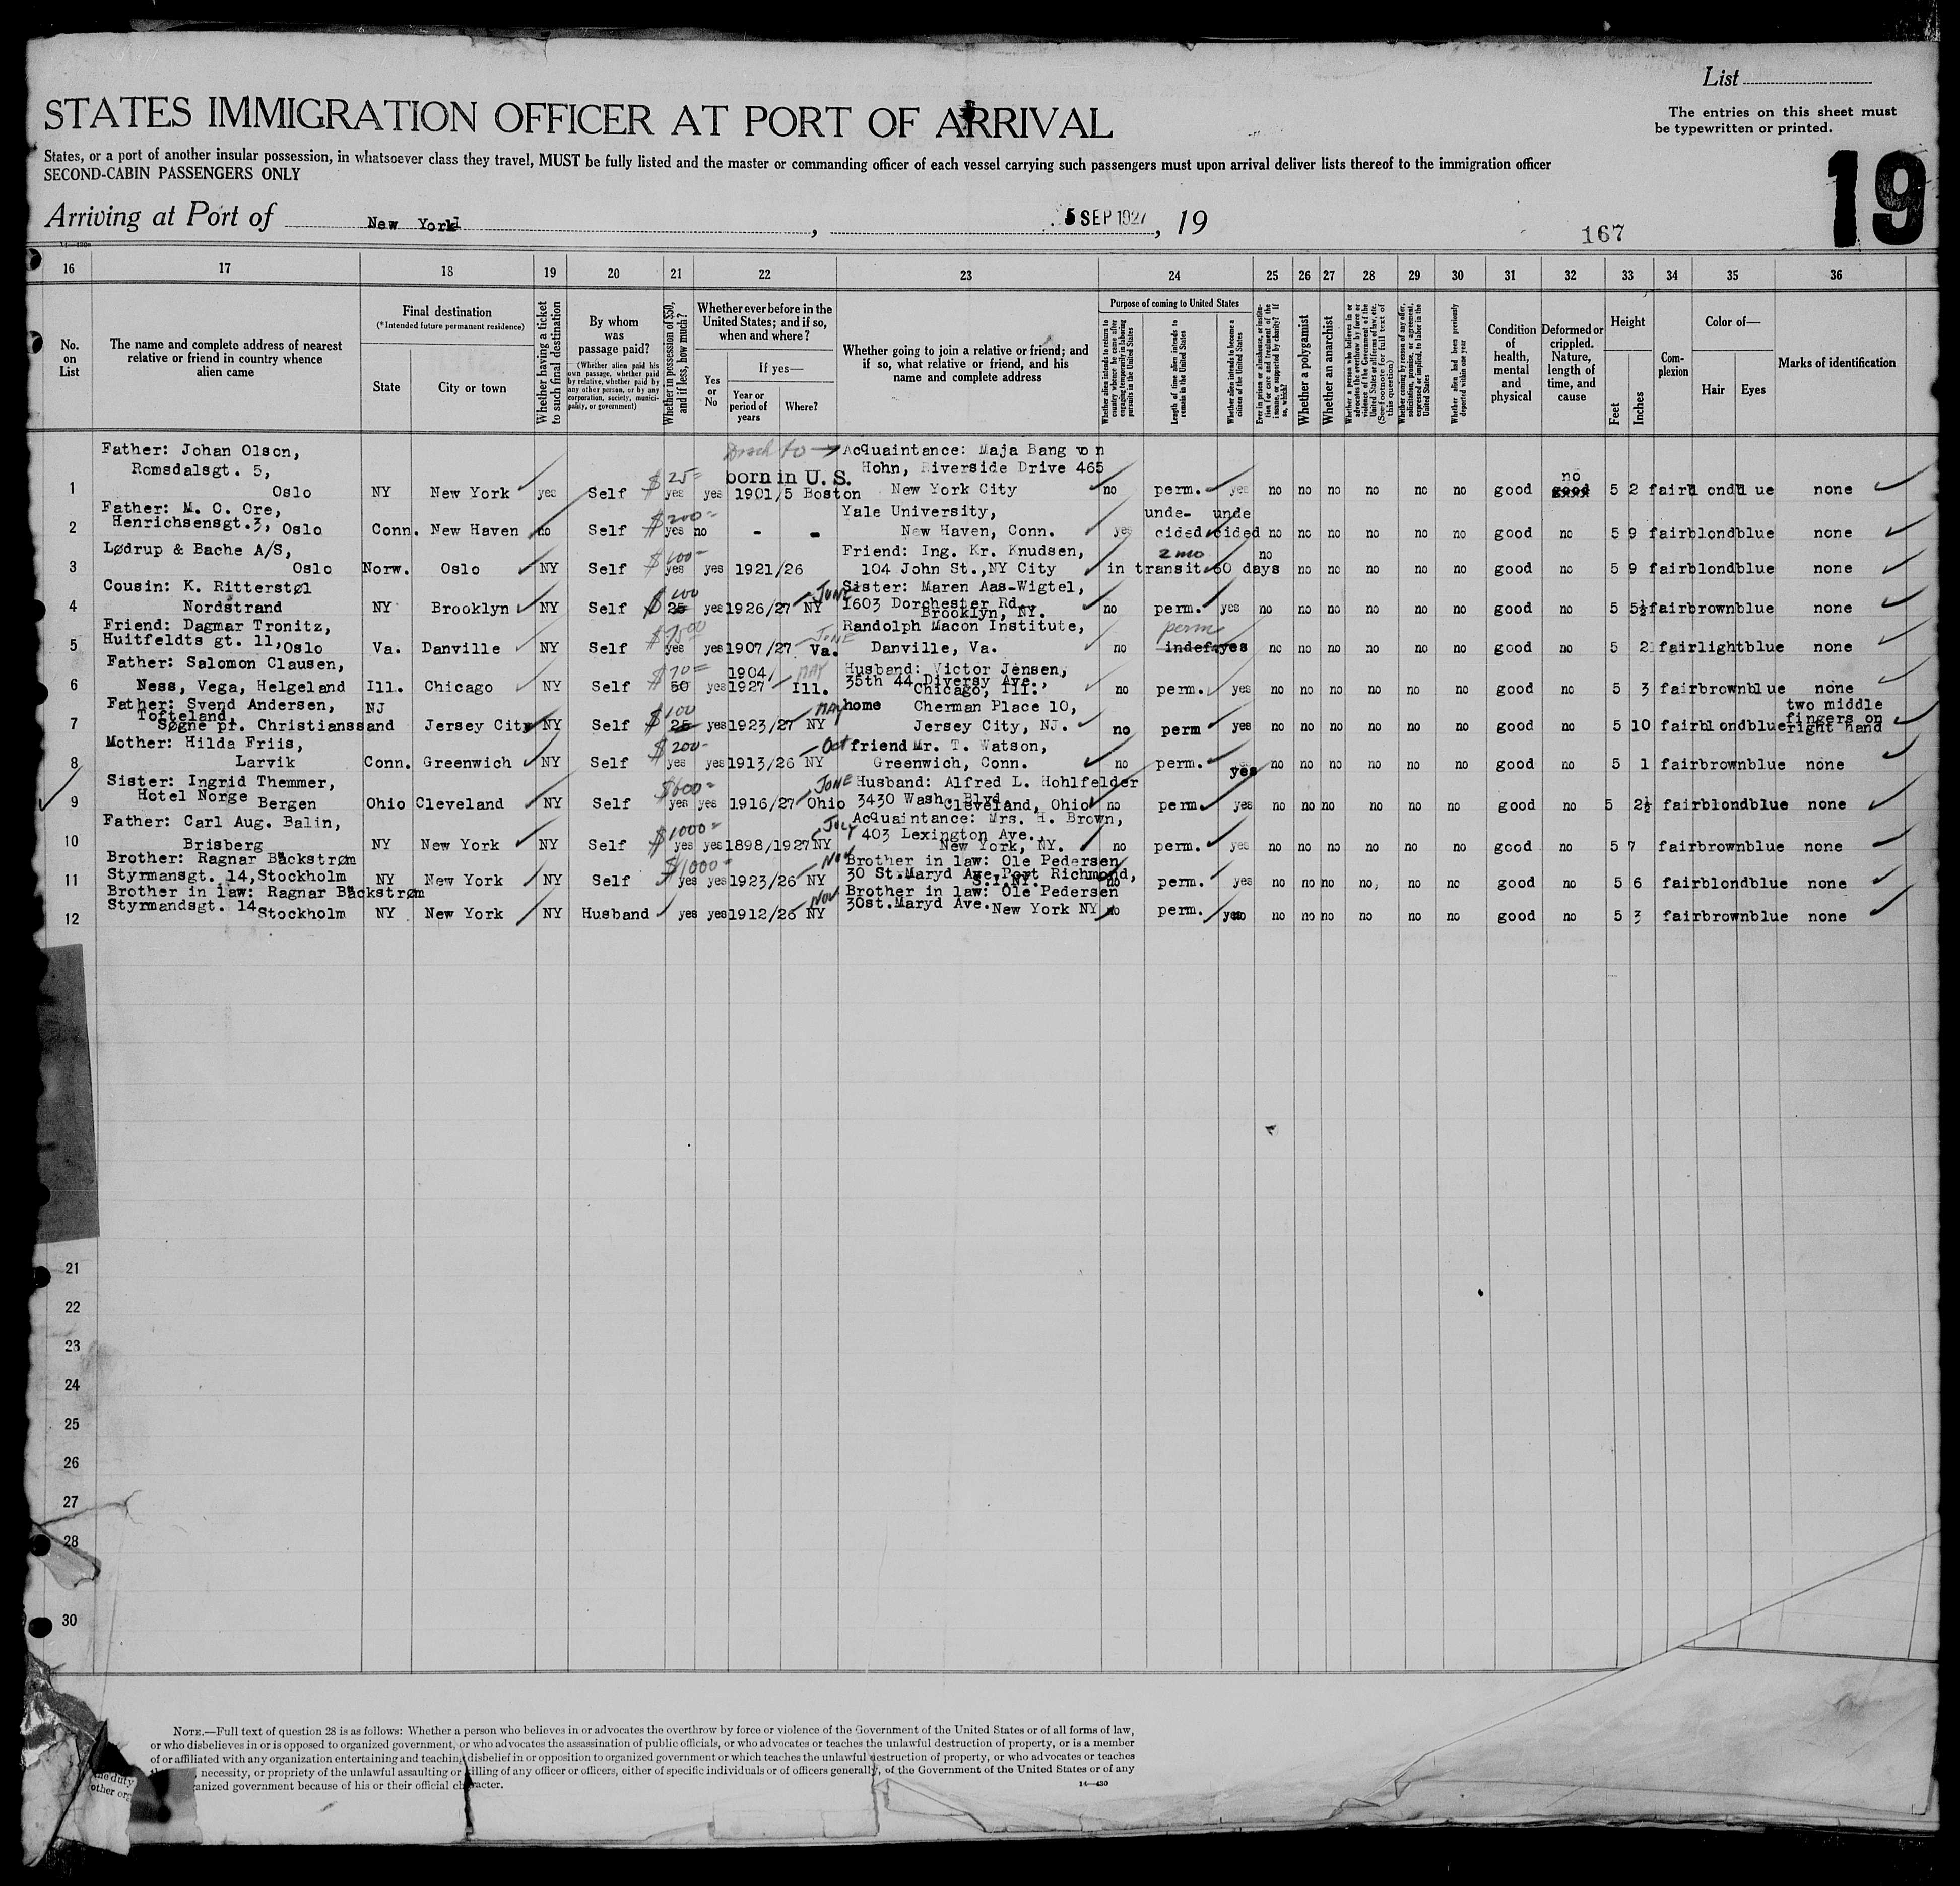 List
STATES IMMIGRATION OFFICER AT PORT OF ARRIVAL
The entries on this sheet must
be typewritten or printed.
States, or a port of another insular possession, in whatsoever class they travel, MUST be fully listed and the master or commanding officer of each vessel carrying such passengers must upon arrival deliver lists thereof to the immigration officer
SECOND-CABIN PASSENGERS ONLY
19
Arriving at Port of New York, 5 SEP 1927, 19
167
16 17 18 19 20 21 22 23 24 25 26 27 28 29 30 31 32 33 34 35 36
No. on List
The name and complete address of nearest relative or friend in country whence alien came
Final destination
(*Intended future permanent residence)
State
City or town
Whether having a ticket to such final destination
By whom was passage paid?
(Whether alien paid his own passage, whether paid by relative, whether paid by any other person, or by any corporation, society, municipality, or government)
Whether in possession of $50, and if less, how much?
Whether ever before in the United States; and if so, when and where?
Yes or No
If yes—
Year or period of years
Where?
Whether going to join a relative or friend; and if so, what relative or friend, and his name and complete address
Purpose of coming to United States
Whether alien intends to return to country whence he came after engaging temporarily in laboring pursuits in the United States
Length of time alien intends to remain in the United States
Whether alien intends to become a citizen of the United States
Ever in prison or almshouse, or institution for care and treatment of the insane, or supported by charity? If so, which?
Whether a polygamist
Whether an anarchist
Whether a person who believes in or advocates the overthrow by force or violence of the Government of the United States or all forms of law, etc. (See footnote for full text of this question)
Whether coming by reason of any offer, solicitation, promise, or agreement, expressed or implied, to labor in the United States
Whether alien had been previously deported within one year
Condition of health, mental and physical
Deformed or crippled. Nature, length of time, and cause
Height
Feet
Inches
Complexion
Color of—
Hair
Eyes
Marks of identification
Father: Johan Olson, Acquaintance: Maja Bang von
Romsdalsgt. 5, $25= born in U. S. Hohn, Riverside Drive 465 no
1 Oslo NY New York yes Self yes yes 1901/5 Boston New York City no perm. yes no no no no no no good good 5 2 fair blond blue none
Father: M. C. Ore, $200= Yale University, unde- unde
2 Henrichsensgt.3, Oslo Conn. New Haven no Self yes no - - New Haven, Conn. yes cided cided no no no no no no good no 5 9 fair blond blue none
Lødrup & Bache A/S, $100- Friend: Ing. Kr. Knudsen, 2 mo no
3 Oslo Norw. Oslo NY Self yes yes 1921/26 104 John St.,NY City in transit 60 days no no no no no good no 5 9 fair blond blue none
Cousin: K. Ritterstøl $100 JUNE Sister: Maren Aas-Wigtel,
4 Nordstrand NY Brooklyn NY Self 25 yes 1926/27 NY 1603 Dorchester Rd., Brooklyn, NY. no perm. yes no no no no no no good no 5 5½ fair brown blue none
Friend: Dagmar Tronitz, JUNE Randolph Macon Institute, perm
5 Huitfeldts gt. 11, Oslo Va. Danville NY Self yes yes 1907/27 Va. Danville, Va. no indef. yes no no no no no no good no 5 2 fair light blue none
Father: Salomon Clausen, $70= 1904/ MAY Husband: Victor Jensen,
6 Ness, Vega, Helgeland Ill. Chicago NY Self 50 yes 1927 Ill. 35th 44 Diversy Ave., Chicago, Ill. no perm. yes no no no no no no good no 5 3 fair brown blue none
Father: Svend Andersen, NJ $100 MAY home Cherman Place 10, two middle
7 Tofteland, Søgne pr. Christianssand Jersey City NY Self 25 yes 1923/27 NY Jersey City, NJ. no perm yes no no no no no no good no 5 10 fair blond blue fingers on right hand
Mother: Hilda Friis, $200- Oct friend Mr. T. Watson,
8 Larvik Conn. Greenwich NY Self yes yes 1913/26 NY Greenwich, Conn. no perm. yes no no no no no no good no 5 1 fair brown blue none
Sister: Ingrid Themmer, $600= JUNE Husband: Alfred L. Hohlfelder
9 Hotel Norge Bergen Ohio Cleveland NY Self yes yes 1916/27 Ohio 3430 Wash. Blvd. Cleveland, Ohio no perm. yes no no no no no no good no 5 2½ fair blond blue none
Father: Carl Aug. Balin, $1000= JULY Acquaintance: Mrs. H. Brown,
10 Brisberg NY New York NY Self yes yes 1898/1927 NY 403 Lexington Ave., New York, NY. no perm. yes no no no no no no good no 5 7 fair brown blue none
Brother: Ragnar Bäckstrøm $1000= NOV Brother in law: Ole Pedersen
11 Styrmansgt. 14, Stockholm NY New York NY Self yes yes 1923/26 NY 30 St.Maryd Ave.Port Richmond, S.I.NY. no perm. yes no no no no, no no good no 5 6 fair blond blue none
Brother in law: Ragnar Bäckstrøm NOV Brother in law: Ole Pedersen
12 Styrmandsgt. 14 Stockholm NY New York NY Husband yes yes 1912/26 NY 30st.Maryd Ave. New York NY no perm. no no no no no no good no 5 3 fair brown blue none
21
22
23
24
25
26
27
28
30
NOTE.—Full text of question 28 is as follows: Whether a person who believes in or advocates the overthrow by force or violence of the Government of the United States or of all forms of law,
or who disbelieves in or is opposed to organized government, or who advocates the assassination of public officials, or who advocates or teaches the unlawful destruction of property, or is a member
of or affiliated with any organization entertaining and teaching disbelief in or opposition to organized government or which teaches the unlawful destruction of property, or who advocates or teaches
necessity, or propriety of the unlawful assaulting or killing of any officer or officers, either of specific individuals or of officers generally, of the Government of the United States or of any
organized government because of his or their official character.
14—430
duty
other org